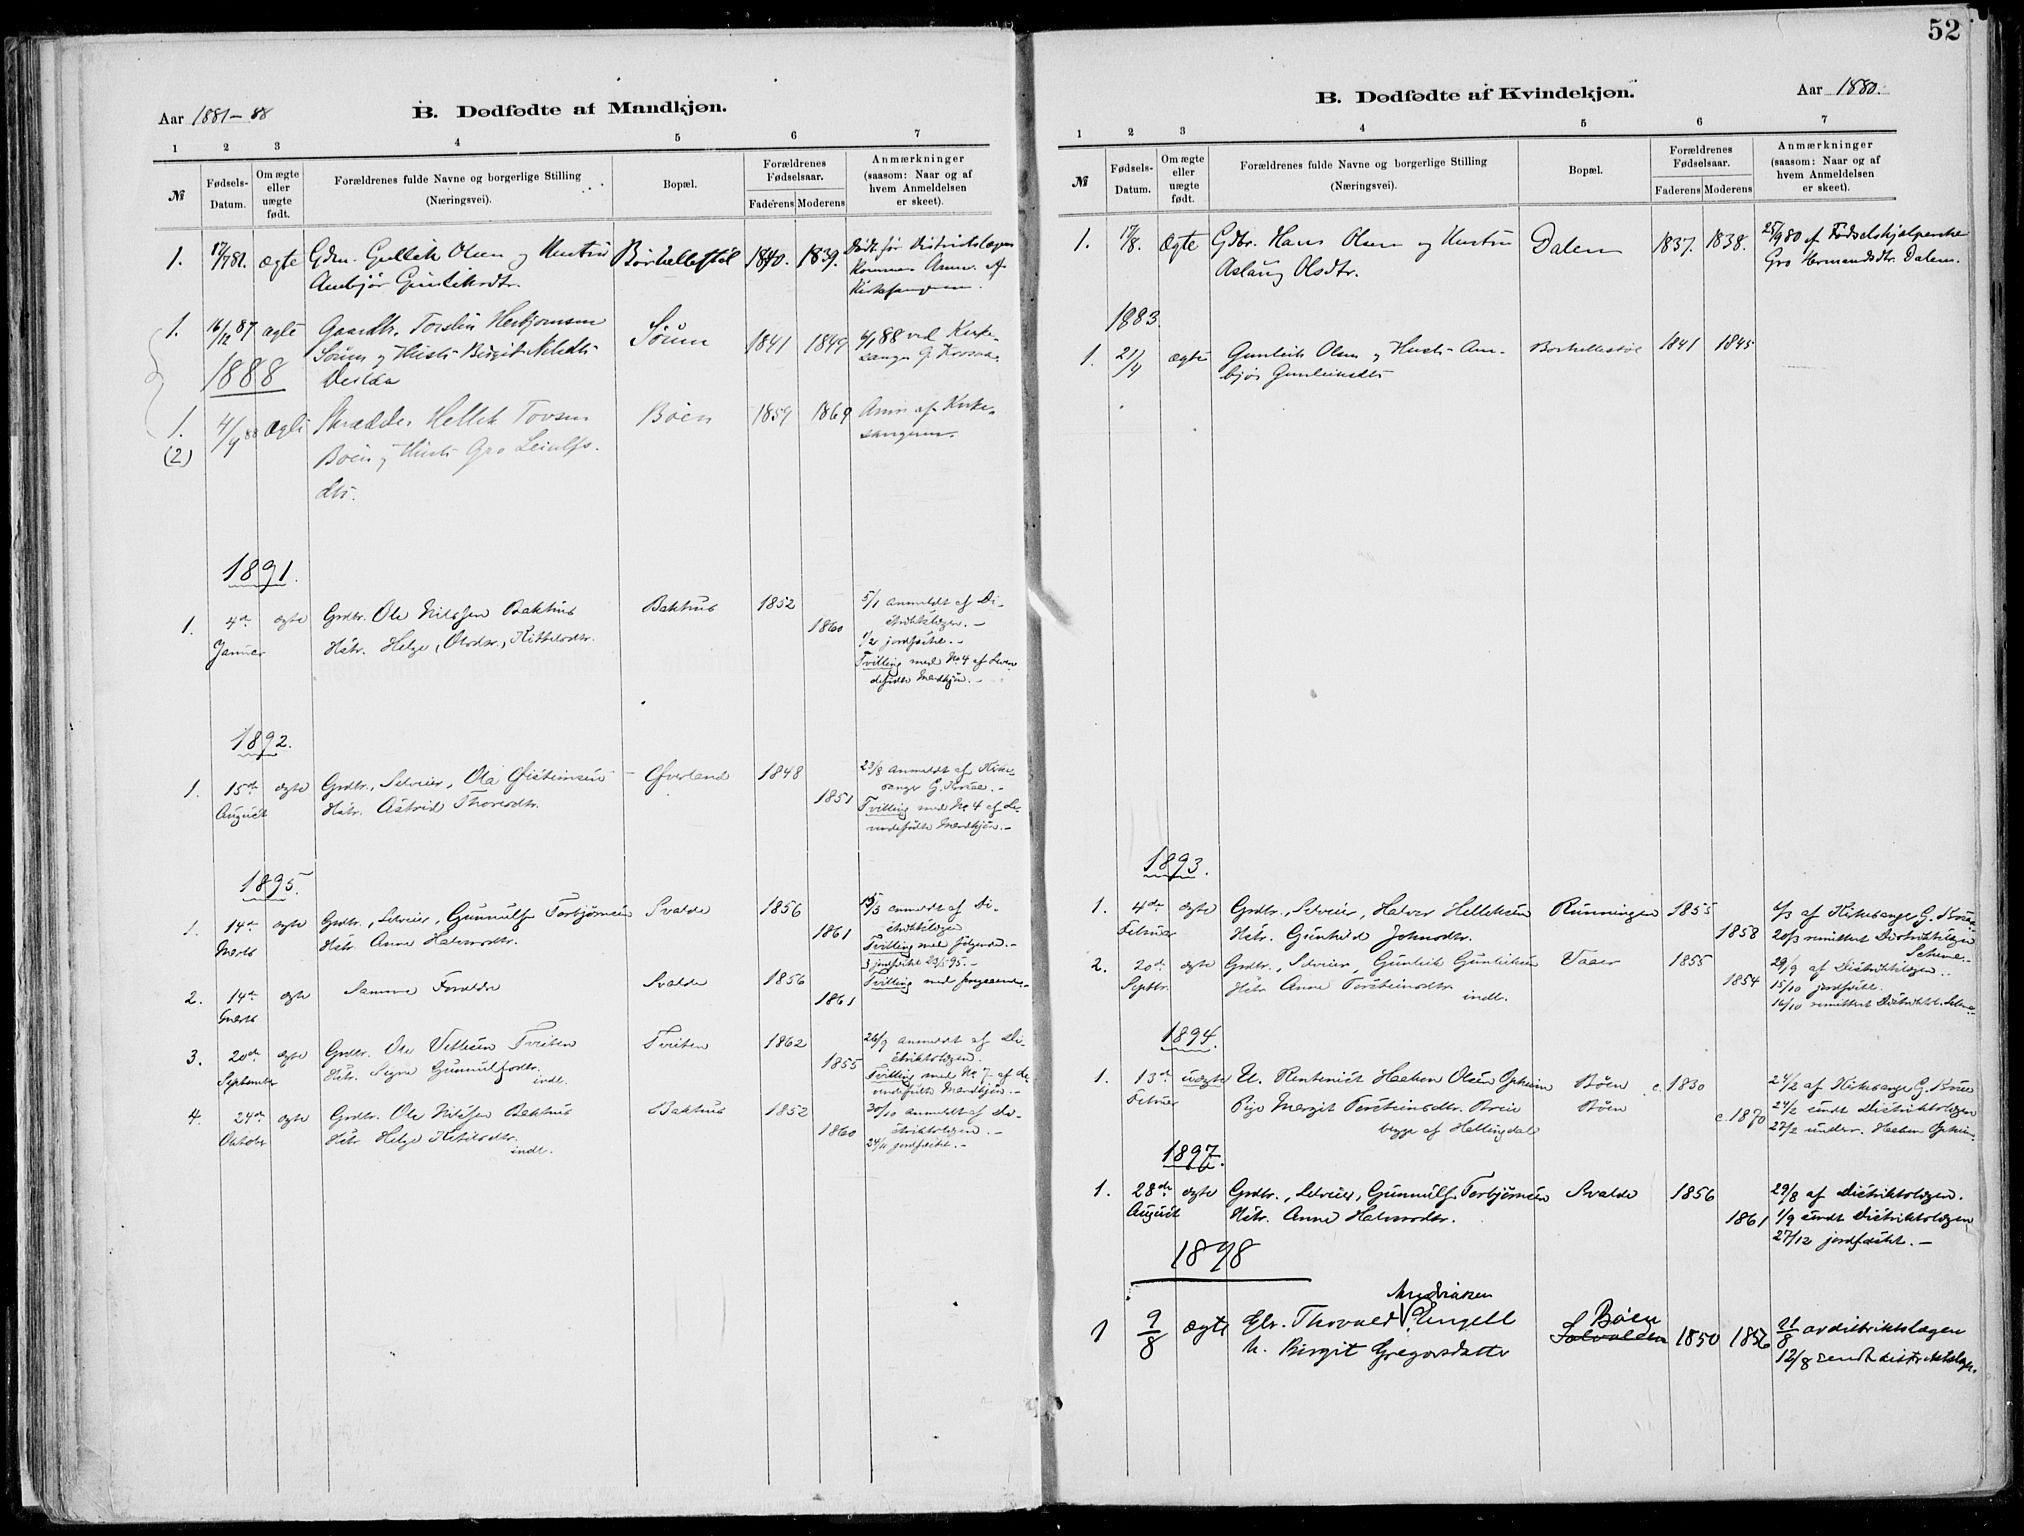 Aar 1881-88
B. Dødfødte af Mandkjøn.
1 2 3 4 5 6 7
№
Fødsels-
Datum.
Om ægte
eller
uægte
født.
Forældrenes fulde Navne og borgerlige Stilling
(Næringsvei).
Bopæl.
Forældrenes
Fødselsaar.
Faderens Moderens
Anmærkninger
(saasom: Naar og af
hvem Anmeldelsen
er skeet).
1. 17/7 81. ægte Gdm. Gullek Olsen og Hustru Børhellestøl 1840. 1839.
Ambjør
1. 16/12 87 ægte Gaardbr. Torstein Herbjørnsen Søum 1841 1849 4/1 88 ved Kirke-
Søum og Hustr. Birgit sanger G. Korsnæs.
1888
1. 4/9 88 ægte Skrædder Hellek Tovsen Bøen 1859 1869 Anm. af Kirke-
(2) Bøen og Hustr. Gro Leiulfs- sangeren.
dtr.
1891.
1. 4de ægte Grdbr. Ole Nilssen Bakhus Bakhus 1852 5/1 anmeldt af Di-
Januar Hstr. Helge, Olsdtr., Kittelsdtr. 1860 striktslægen. -
1/2 jordfæstet. -
Tvilling med No. 4 af Leven-
defødte Mandkjøn. -
1892.
1. 15de ægte Grdbr., Selveier, Ola Øisteinsen - Øverland 1848 23/8 anmeldt af Kirke-
August Hstr. Astrid Thoresdtr. 1851 sanger G. Korsnæs. -
Tvilling med No 4 af Le-
vendefødte Mandkjøn. -
1895.
1. 14de ægte Grdbr., Selveier, Gunnulf Torbjørnsen Svalde 1856 15/3 anmeldt af Di-
Marts Hstr. Anne Halvorsdtr. 1861 striktslægen
Tvilling med følgende. -
jordfæstet 23/5 95. -
2. 14de ægte Samme Forældre Svalde 1856 Tvilling med foregaaende. -
Marts 1861
3. 20de ægte Grdbr. Ole Vetlesen Tveiten Tveiten 1862 26/9 anmeldt af Di-
September Hstr. Signe Gunnulfsdtr. indl. 1855 striktslægen.
Tvilling med No. 7 af Le-
vendefødte Mandkjøn. -
4. 24de ægte Grdbr. Ole Nilssen Bakhus Bakhus 1852 30/10 anmeldt af Di-
Oktober Hstr. Helge Kittelsdtr. indl. 1860 striktslægen. -
24/11 jordfæstet. -
52
B. Dødfødte af Kvindekjøn.
Aar 1880.
1 2 3 4 5 6 7
№
Fødsels-
Datum.
Om ægte
eller
uægte
født.
Forældrenes fulde Navne og borgerlige Stilling
(Næringsvei).
Bopæl.
Forældrenes
Fødselsaar.
Faderens Moderens
Anmærkninger
(saasom: Naar og af
hvem Anmeldelsen
er skeet).
1. 17/8. Ægte Gdbr. Hans Olsen og Hustru Dalem 1837. 1838. 25/9 80 af Fødselshjælperske
Aslaug Olsdtr. Gro Hermandsdtr. Dalem.
1883.
1. 21/4 ægte Gunleik Olsen og Hustr. Am- Borhellestøl 1841 1845
bjør Gunleiksdtr
1893.
1. 4de ægte Grdbr., Selveier, Halvor Helleksen Rønningen 1855 6/3 af Kirkesanger G. Korsnæs
Februar Hstr. Gunhild Johnsdtr. 1858 20/3 remitteret Distriktslægen
2. 20de ægte Grdbr., Selveier, Gunleik Gunleiksen Vaaer 1855 29/9 af Distriktslægen.
Septbr. Hstr. Anne Torsteinsdtr. indl. 1854 15/10 jordfæstet.
16/10 remitteret Distriktsl.
1894.
1. 13de uægte U. Rentenist Haaken Olsen Opheim Bøen c. 1830 24/2 af Kirkesanger G. Korsnæs
Februar Pige Margit Torsteinsdtr. Breie Bøen c. 1870 24/2 sendt Distriktslægen
begge af Hallingdal 27/2 underr. Haaken Opheim.
1897.
1. 28de ægte Grdbr., Selveier, Gunnulf Torbjørnsen Svalde 1856 29/8 af Distriktslægen.
August Hstr. Anne Halvorsdtr. 1861 1/9 sendt Distriktslægen
27/12 jordfæstet. -
1898
Andreasen
1 9/8 ægte Elr. Thorvald Engell Bøen 1850 1856 11/8 av distriktslægen
h. Birgit Gregorsdatter 12/8 sendt distriktslægen.